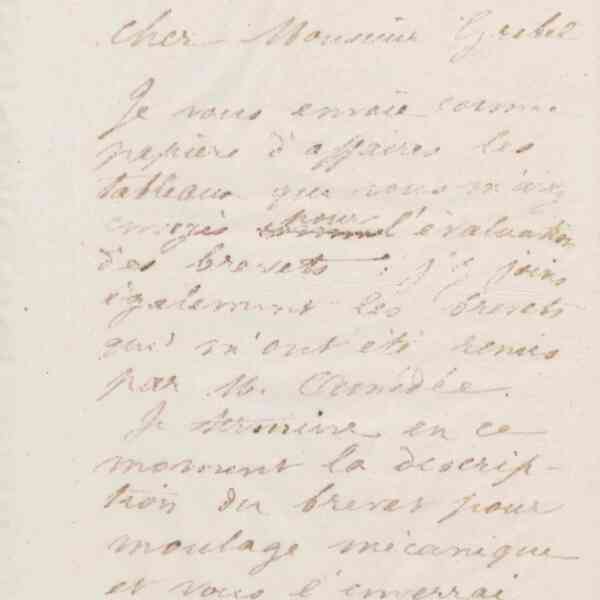 Cher Monsieur Grebel
Je vous envoie comme
papiers d'affaires les
tableaux que vous m'avez
envoyés pour l'évaluation
des brevets : j'y joins
également les brevets
qui m'ont été remis
par M. Amédée.
Je termine en ce
moment la descrip-
tion du brevet pour
moulage mécanique
et vous l'enverrai